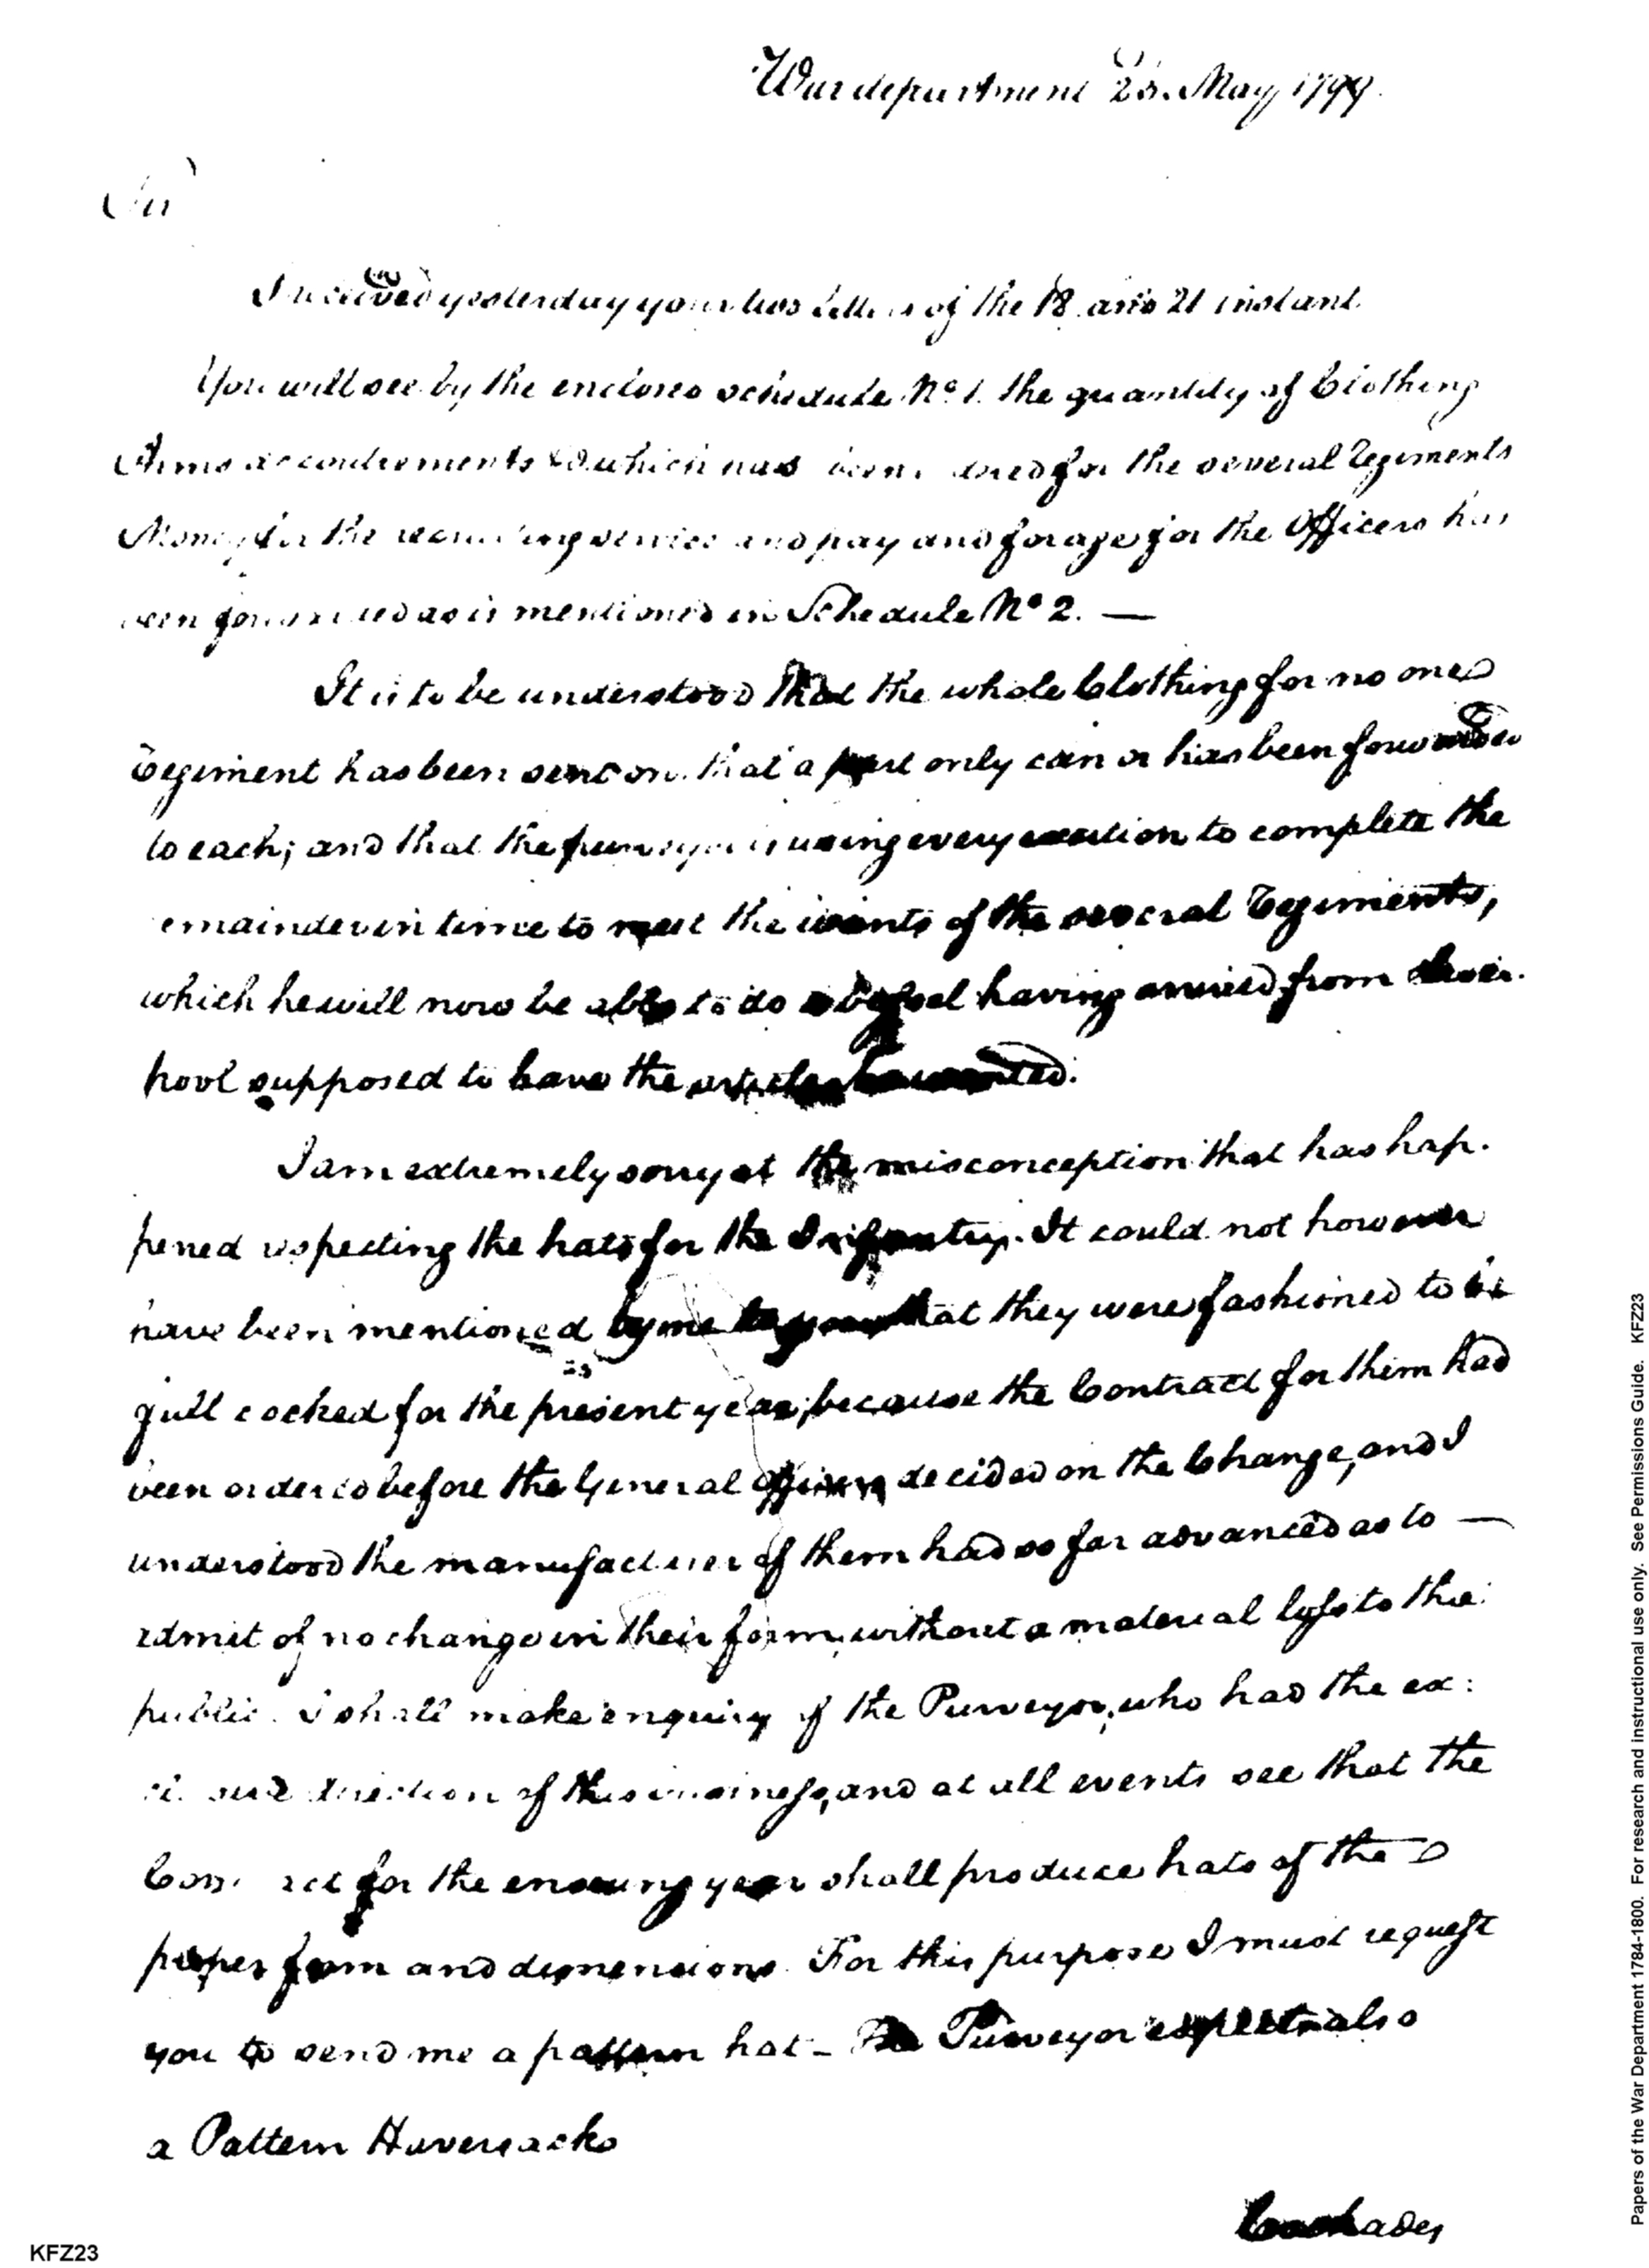 War department 23. May 1799.
Sir
I received yesterday your two letters of the 18 and 21 instant
You will see by the enclosed schedule No. 1. the quantity of Clothing
Arms accoutrements &c. which has been for the several Regiments
Money for the recruiting service and pay and forage for the Officers has
been forwarded as is mentioned in Schedule No 2. —
It is to be understood that the whole Clothing for no one
Regiment has been sent on. that a part only can or has been forwarded
to each; and that the purveyor is using every exertion to complete the
remainder in time to meet the wants of the several Regiments,
which he will now be able to do a vessel having arrived from Liver.
pool supposed to have the articles he wanted.
I am extremely sorry at the misconception that has hap.
pened respecting the hats for the Infantry. It could not however
have been mentioned by me to you that they were fashioned to be
full cocked for the present year, because the Contract for them had
been ordered before the General officers decided on the Change, and I
understood the manufacturer of them had so far advanced as to —
admit of no change in their form, without a material loss to the
public. I shall make enquiry of the Purveyor, who had the ex:
clusive direction of this business, and at all events see that the
Contract for the ensuing year shall produce hats of the
proper form and dimensions. For this purpose I must request
you to send me a pattern hat - The Purveyor expects also
a Pattern Haversack
Cockades
KFZ23
Papers of the War Department 1784-1800. For research and instructional use only. See Permissions Guide. KFZ23